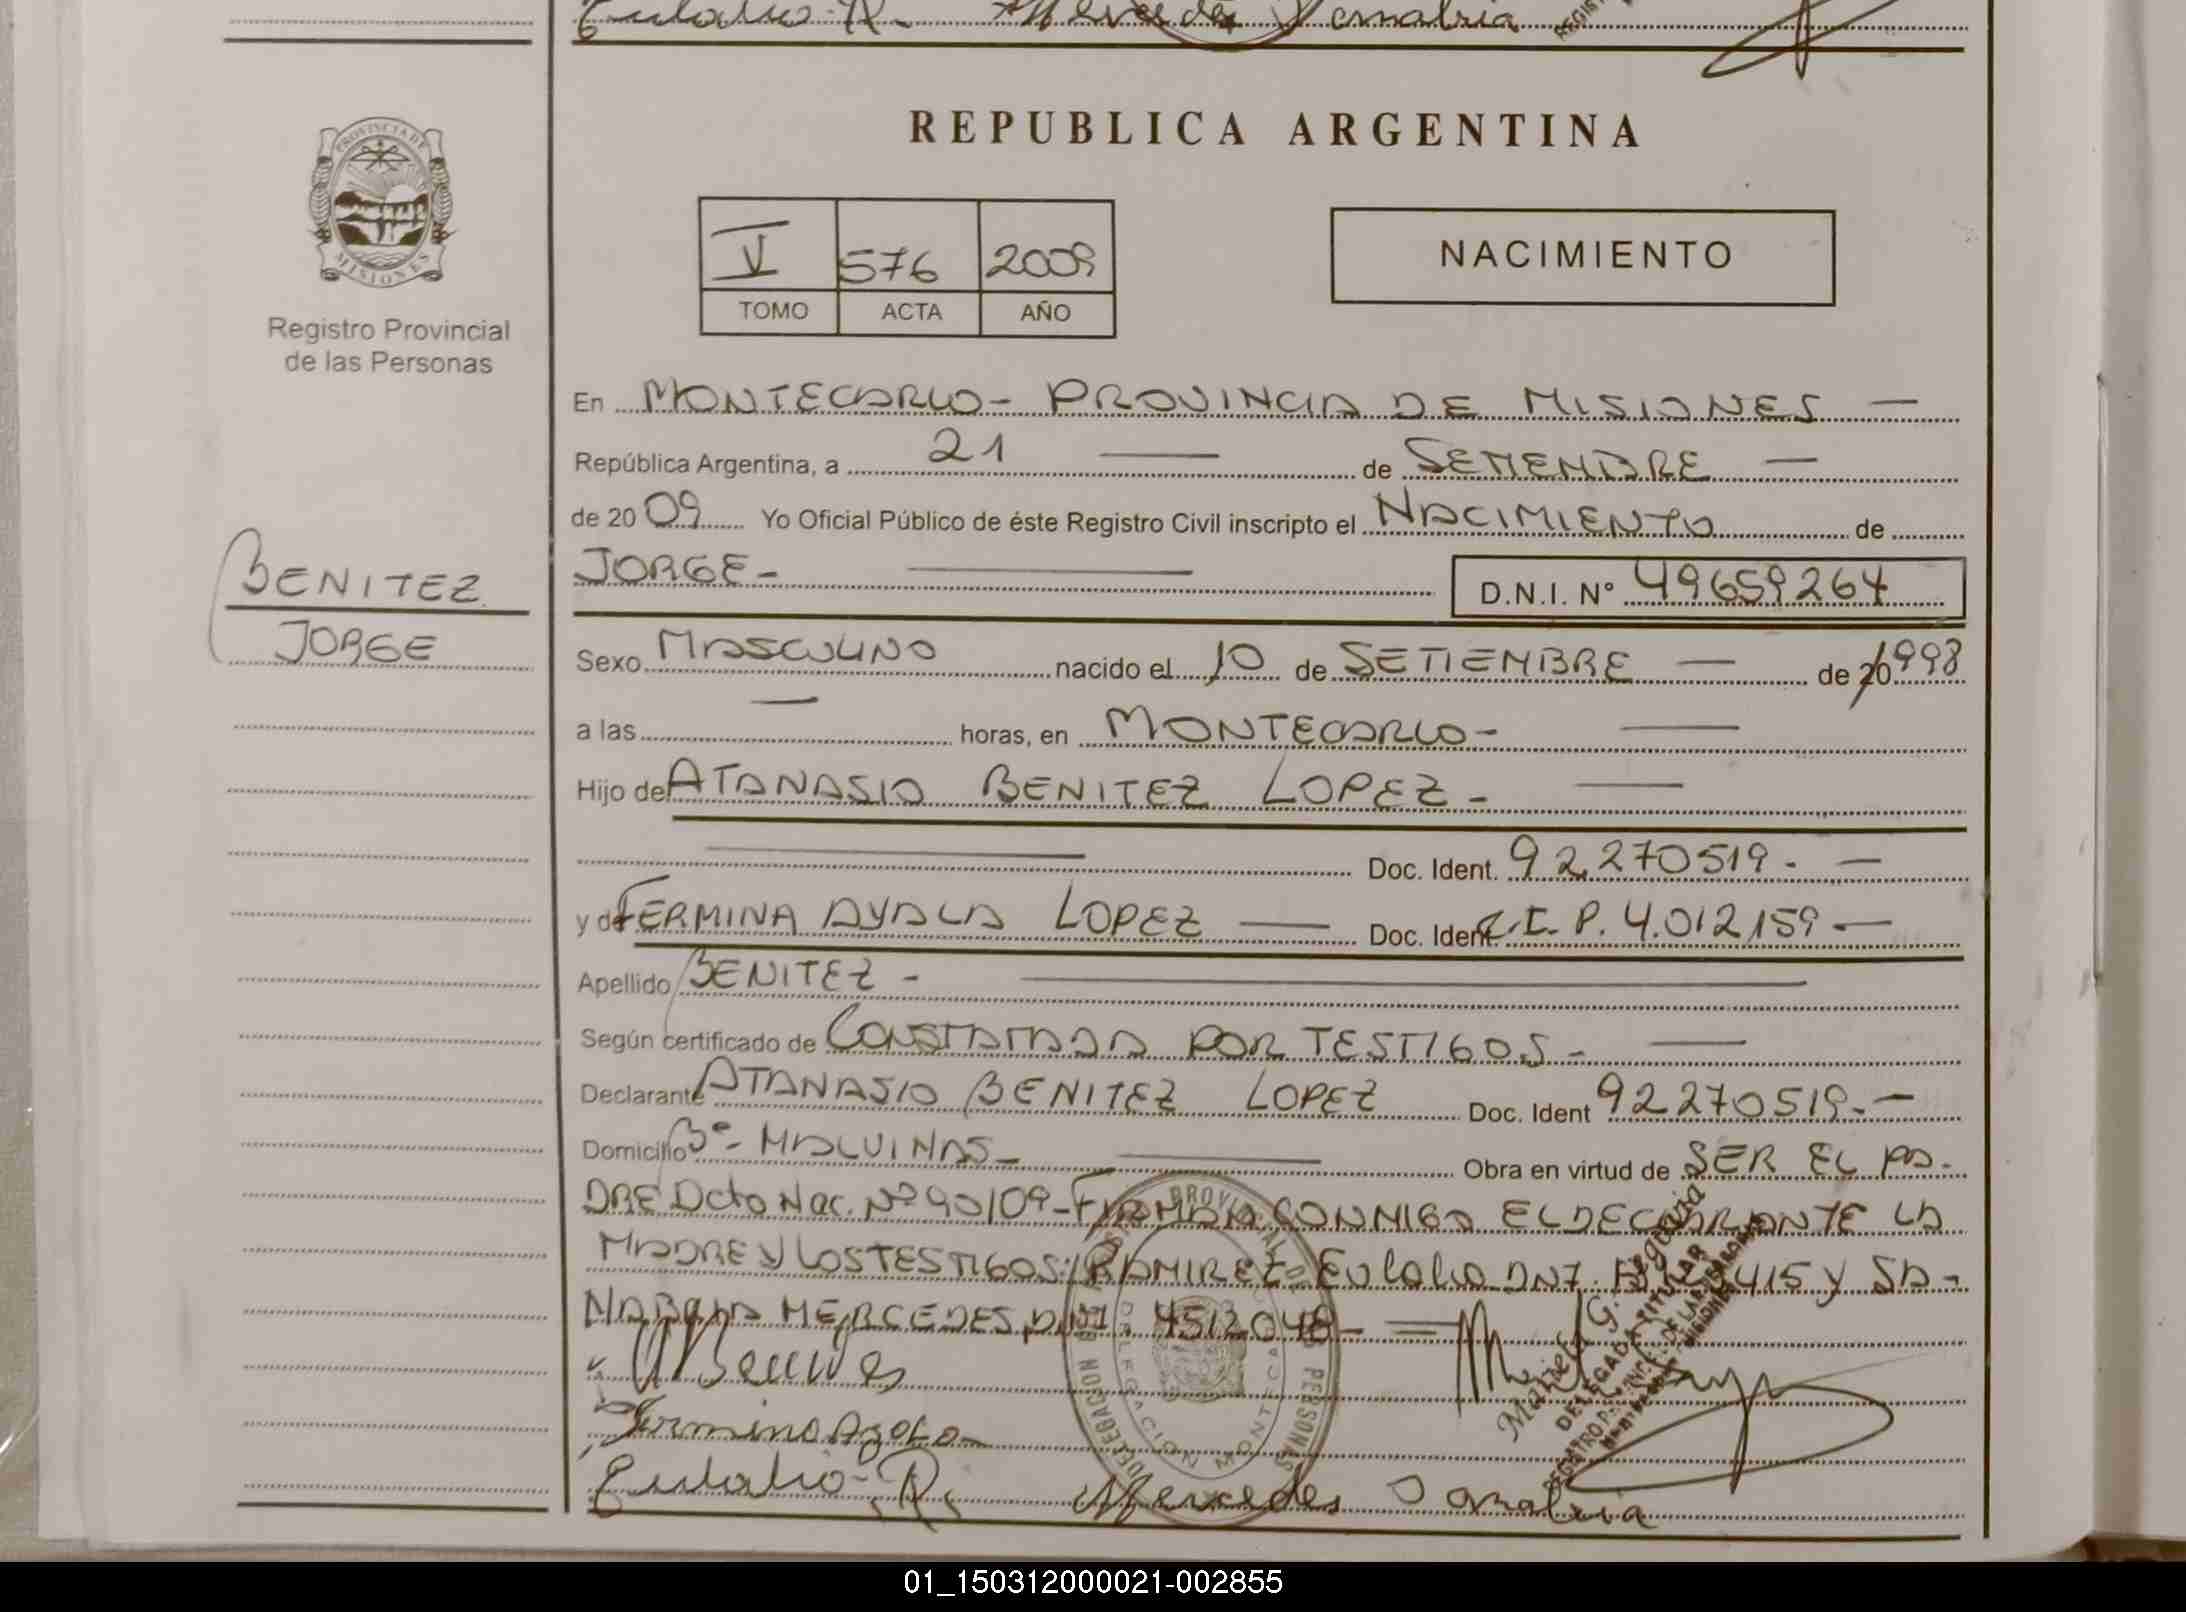 Eulalio R. Mercedes Sanabria
PROVINCIA DE
MISIONES
Registro Provincial
de las Personas
REPUBLICA ARGENTINA
V 576 2009
TOMO ACTA AÑO
NACIMIENTO
En MONTECARLO - PROVINCIA DE MISIONES —
República Argentina, a 21 — de SETIEMBRE —
de 2009 Yo Oficial Público de éste Registro Civil inscripto el NACIMIENTO de
JORGE - — D.N.I. Nº 49659264
BENITEZ
JORGE
Sexo MASCULINO nacido el 10 de SETIEMBRE — de 1998
a las — horas, en MONTECARLO - —
Hijo de ATANASIO BENITEZ LOPEZ - —
— Doc. Ident. 92.270519. —
y de FERMINA AYALA LOPEZ — Doc. Ident. C.I. P. 4.012.159 —
Apellido BENITEZ - —
Según certificado de CONSTATADA POR TESTIGOS - —
Declarante ATANASIO BENITEZ LOPEZ Doc. Ident 92270519. —
Domicilio Bº - MALVINAS - — Obra en virtud de SER EL PA-
DRE Dcto Nac. Nº 90/09 - FIRMAN CONMIGO EL DECLARANTE LA
MADRE Y LOS TESTIGOS: RAMIREZ Eulalio DNI. 415 Y SA-
NABRIA MERCEDES, DNI. 4512048 - —
Fermina Ayala
Eulalio R. Mercedes Sanabria
PROVINCIAL DE LAS PERSONAS
DELEGACION MONTECARLO
Mariela G. Segovia
DELEGADA TITULAR
REGISTRO PROVINC. DE LAS PERSONAS
01_150312000021-002855